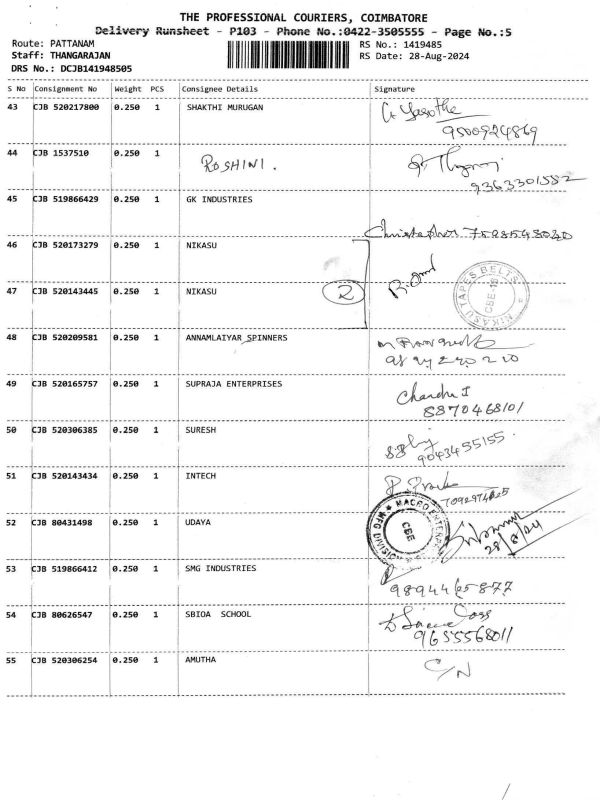 THE PROFESSIONAL COURIERS, COIMBATORE
Delivery Runsheet - P103 - Phone No.:0422-3505555 - Page No.:5
Route: PATTANAM RS No.: 1419485
Staff: THANGARAJAN RS Date: 28-Aug-2024
DRS No.: DCJB141948505
S No Consignment No Weight PCS Consignee Details Signature
43 CJB 520217800 0.250 1 SHAKTHI MURUGAN
9500924869
44 CJB 1537510 0.250 1 ROSHINI.
9363301582
45 CJB 519866429 0.250 1 GK INDUSTRIES
Christopher 7598548020
46 CJB 520173279 0.250 1 NIKASU
47 CJB 520143445 0.250 1 NIKASU 2
NIKASU TAPES BELTS
CBE-16
48 CJB 520209581 0.250 1 ANNAMLAIYAR SPINNERS
49 CJB 520165757 0.250 1 SUPRAJA ENTERPRISES
Chandru I
8870468101
50 CJB 520306385 0.250 1 SURESH
9043455155.
51 CJB 520143434 0.250 1 INTECH
52 CJB 80431498 0.250 1 UDAYA
MACRO
MFG DIVISION
CBE
28/8/24
53 CJB 519866412 0.250 1 SMG INDUSTRIES
9894465877
54 CJB 80626547 0.250 1 SBIOA SCHOOL
9655568011
55 CJB 520306254 0.250 1 AMUTHA
C/N